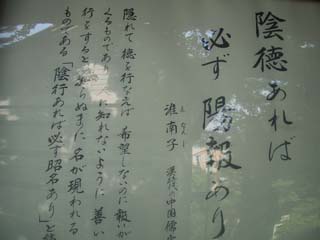 陰徳あれば
必ず陽報あり
えなんじ
淮南子 漢時代の中国儒
隠れて徳を行なえば希望しないのに報いが
くるものであり 知れないように善い
行をすると 知らぬまに名が現われる
ものである「陰行あれば必ず昭名あり」と